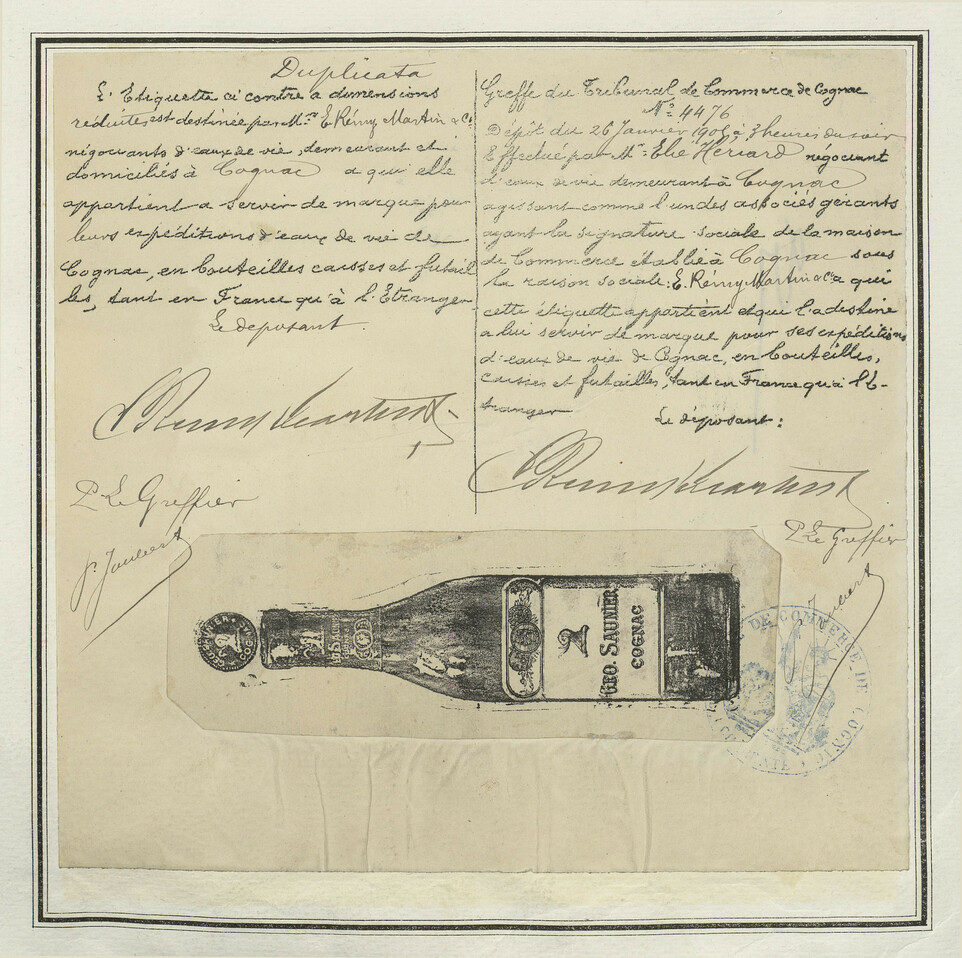 Duplicata
L'Etiquette ci contre a dimensions
réduites est destinée par Mrs E. Rémy Martin & Co
négociants d'eaux de vie, demeurant et
domiciliés à Cognac a qui elle
appartient a servir de marque pour
leurs expéditions d'eaux de vie de
Cognac, en bouteilles caisses et futail
les, tant en France qu'à l'Etranger
Le deposant.
E Rémy Martin & Co
P. Le Greffier
Greffe du Tribunal de Commerce de Cognac
No 4476
Dépôt du 26 Janvier à 3 heures du soir
Effectué par Mr Elie Hériard négociant
d'eaux de vie demeurant à Cognac
agissant comme l'un des associés gérants
ayant la signature sociale de la maison
de Commerce établie à Cognac sous
la raison sociale: E. Rémy Martin & Co a qui
cette étiquette appartient et qui l'a destine
a lui servir de marque pour ses expéditions
d'eaux de vie de Cognac, en bouteilles,
caisses et futailles, tant en France qu'à l'E-
tranger
Le déposant:
E Rémy Martin & Co
P. Le Greffier
GEO. SAUNIER
COGNAC
DE COMMERCE DE COGNAC